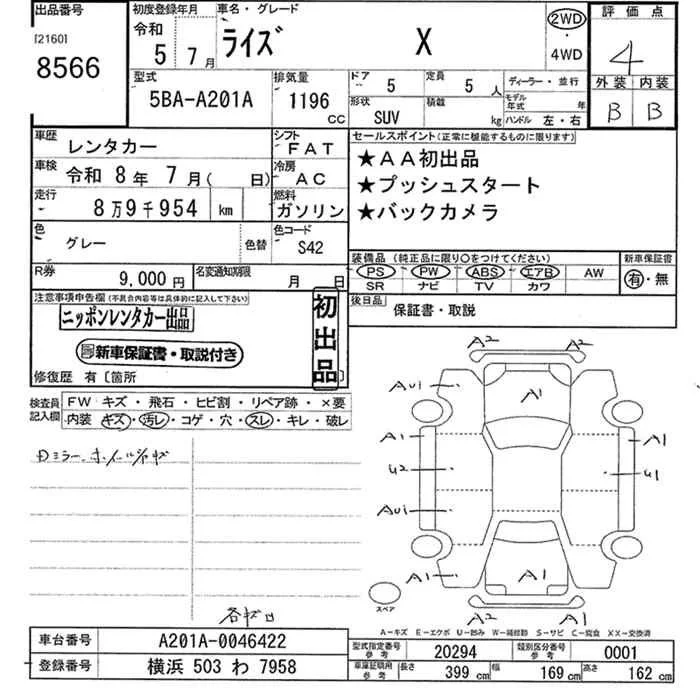 出品番号
[2160]
8566
初度登録年月
令和
5 7月
車名・グレード
ライズ X
2WD
・
4WD
評価点
4
外装 内装
B B
型式
5BA-A201A
排気量
1196 CC
ドア 5
定員 5 人
形状 SUV
積載 kg
ディーラー・並行
モデル年式 年
ハンドル 左・右
車歴 レンタカー
シフト FAT
車検 令和 8年 7月( 日)
冷房 AC
走行 8万9千954 km
燃料 ガソリン
色 グレー
色替
色コード S42
R券 9,000円
名変通知期限 月 日
セールスポイント(正常に機能するものに限ります)
★AA初出品
★プッシュスタート
★バックカメラ
装備品 (純正品に限り〇をつけてください)
PS PW ABS エアB AW
SR ナビ TV カワ
新車保証書
有・無
後日品 保証書・取説
注意事項申告欄(不具合内容等は具体的に記入して下さい)
ニッポンレンタカー出品
新車保証書・取説付き
初出品
修復歴 有〔箇所 〕
検査員記入欄
FW キズ・飛石・ヒビ割・リペア跡・×要
内装 キズ・汚レ・コゲ・穴・スレ・キレ・破レ
各キロ
A2 A2
AU1 A1
A1 A1
U2 U1
AU1
A1 A1
A2 A1
スペア
A-キズ E-エクボ U-凹み W-補修跡 S-サビ C-腐食 XX-交換済
車台番号 A201A-0046422
登録番号 横浜 503 わ 7958
型式指定番号 参考 20294
類別区分番号 参考 0001
車庫証明用 参考 長さ 399 cm 幅 169 cm 高さ 162 cm